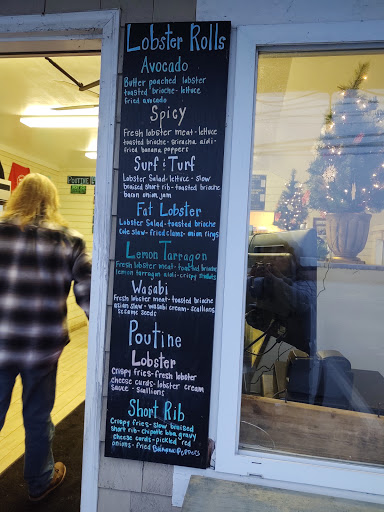 Lobster Rolls
Avocado
Butter poached lobster
toasted brioche - lettuce
fried avocado
Spicy
Fresh lobster meat - lettuce
toasted brioche - sriracha aioli -
fried banana poppers
Surf & Turf
Lobster Salad - lettuce - slow
braised short rib - toasted brioche
bacon onion jam
Fat Lobster
Lobster Salad - toasted brioche
Cole slaw - fried clams - onion rings
Lemon Tarragon
Fresh lobster meat - toasted brioche
lemon tarragon aioli - crispy shallots
Wasabi
Fresh lobster meat - toasted brioche
asian slaw - wasabi cream - scallions
sesame seeds
Poutine
Lobster
Crispy fries - fresh lobster
cheese cards - lobster cream
sauce - scallions
Short Rib
Crispy fries - slow braised
short rib - chipotle bbq gravy
cheese cards - pickled red
onions - fried Banana Peppers